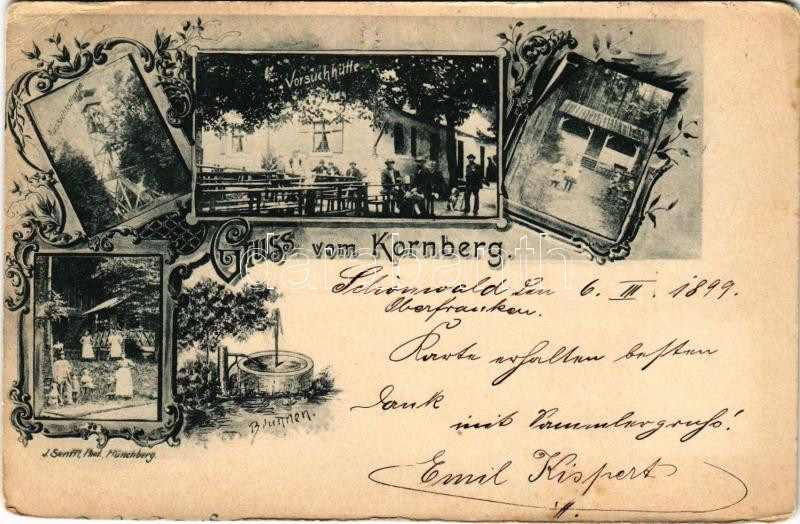 Vorsuchhütte
Gruss vom Kornberg.
Schönwald den 6. III. 1899.
Oberfranken.
Karte erhalten besten
Dank
mit Sammlergruß!
Emil Kispert
Brunnen.
J. Senfft, Phot. Münchberg.
darabanth